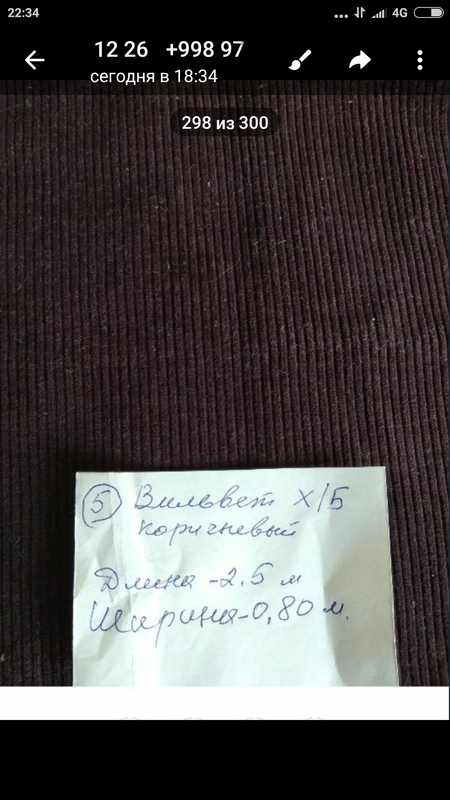 22:34
4G
12 26 +998 97
сегодня в 18:34
298 из 300
5 Вильвет Х/Б
коричневый
Длина - 2,5 м
Ширина - 0,80 м.